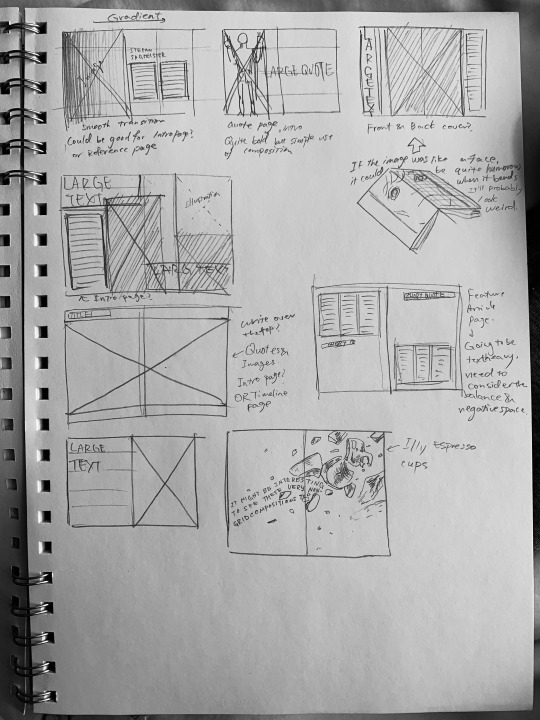 Gradient
STEFAN
SAGMEISTER
Smooth transition
Could be good for Intro page?
or Reference page
LARGE QUOTE
Quote page, intro
Quite bold but simple use
of composition
LARGE TEXT
Front & Back cover?
If the image was like a face,
it could be quite humorous
when it bends
It'll probably
look
weird.
LARGE
TEXT
Illustration
LARGE TEXT
Intro page?
TITLE
Write over
the top?
Quotes on
Images
Intro page?
OR Timeline
page
Feature
Article
page.
Going to be
text heavy,
need to
consider the
balance &
negative space
LARGE
TEXT
IT MIGHT BE INTERESTING
TO SEE THESE VERY NON-
GRID COMPOSITIONS TOO
Illy Espresso
cups